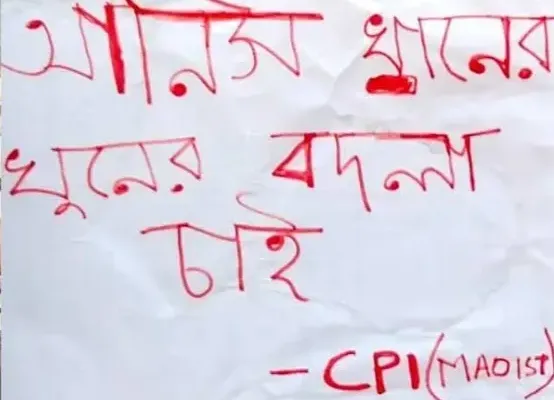 আনিস খানের
খুনের বদলা
চাই
– CPI (MAOIST)